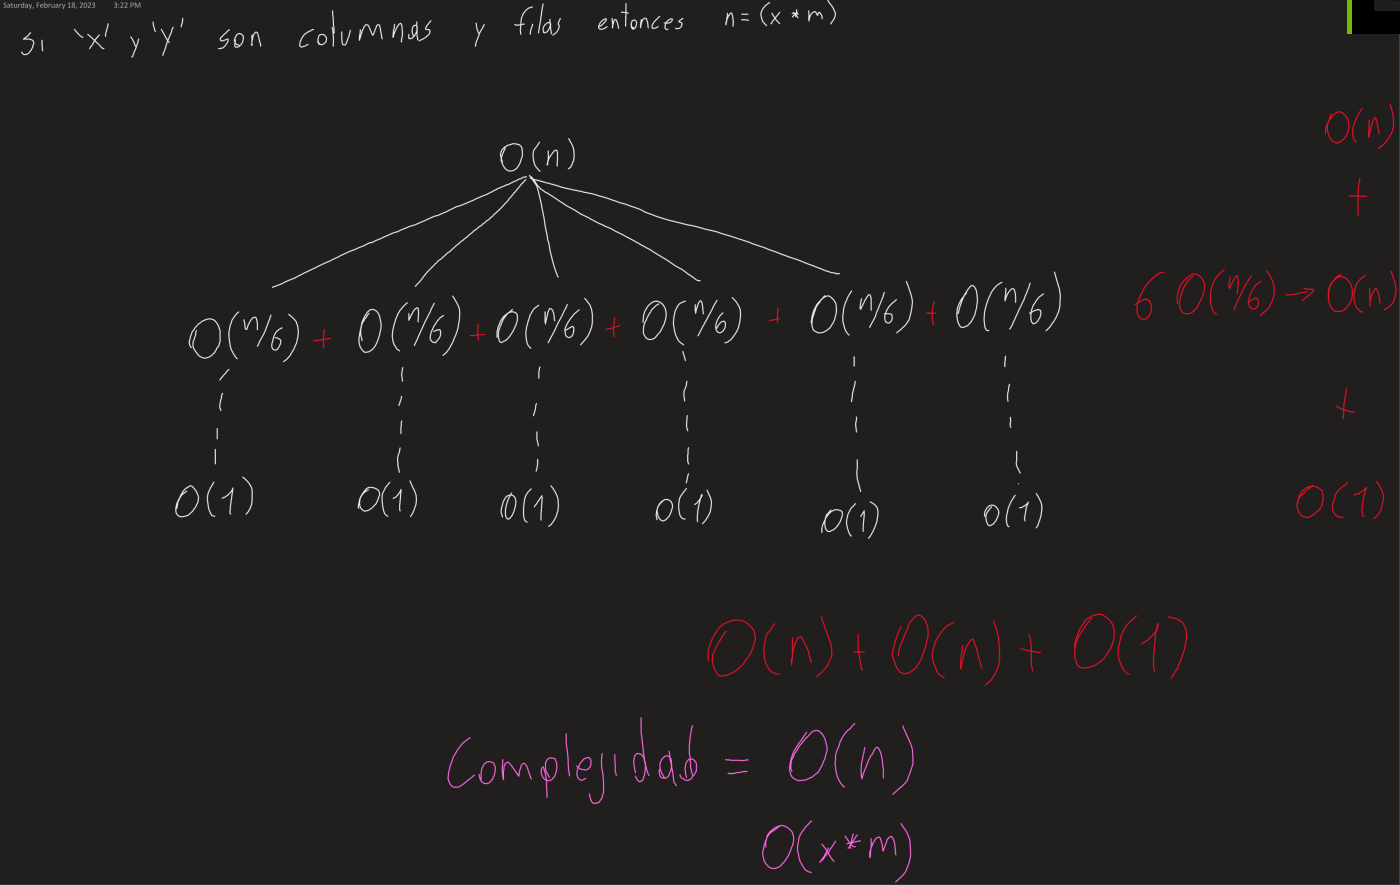 Saturday, February 18, 2023 3:22 PM
Si 'x' y 'y' son columnas y filas entonces n = (x * m)
O(n)
O(n)
+
O(n/6) + O(n/6) + O(n/6) + O(n/6) + O(n/6) + O(n/6) 6 O(n/6) → O(n)
+
O(1) O(1) O(1) O(1) O(1) O(1) O(1)
O(n) + O(n) + O(1)
Complejidad = O(n)
O(x*m)